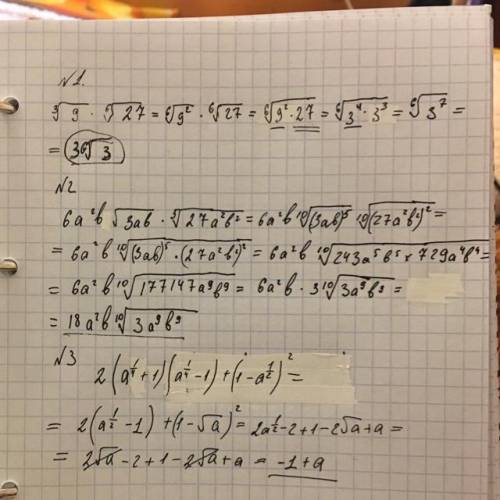 №1.
∛9 · ⁶√27 = ⁶√9² · ⁶√27 = ⁶√9² · 27 = ⁶√3⁴ · 3³ = ⁶√3⁷ =
= 3 ⁶√3
№2
6a²b √3ab · ⁵√27a²b² = 6a²b ¹⁰√(3ab)⁵ ¹⁰√(27a²b²)² =
= 6a²b ¹⁰√(3ab)⁵ · (27a²b²)² = 6a²b ¹⁰√243a⁵b⁵ × 729a⁴b⁴ =
= 6a²b ¹⁰√177147a⁹b⁹ = 6a²b · 3 ¹⁰√3a⁹b⁹ =
= 18a²b ¹⁰√3a⁹b⁹
№3
2(a^¼ + 1)(a^¼ - 1) + (1 - a^½)² =
= 2(a^½ - 1) + (1 - √a)² = 2a^½ - 2 + 1 - 2√a + a =
= 2√a - 2 + 1 - 2√a + a = -1 + a